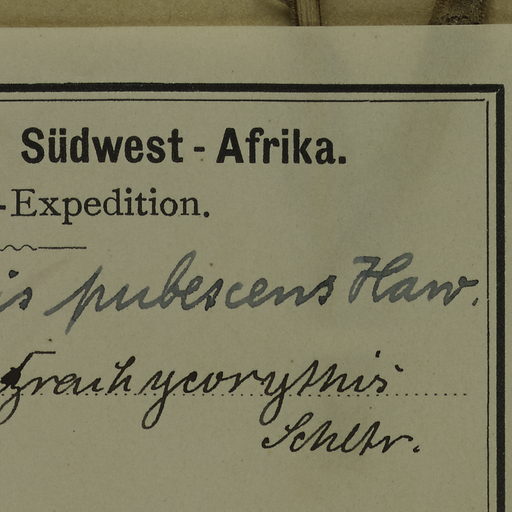 Südwest - Afrika.
-Expedition.
is pubescens Haw.
Brachycorythis
Schltr.